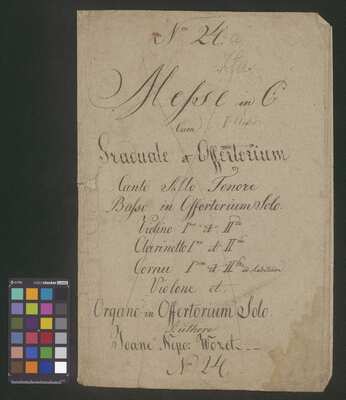 No 24
Messe in C
Cum
Graduale et Offertorium
Canto Alto Tenore
Basso in Offertorium Solo.
Violino Imo et IIdo
Clarinetto Imo et IIdo
Cornu Imo et IIdo
Violone et
Organo in Offertorium Solo.
Authore
Joane Nepo: Wozet
No 24